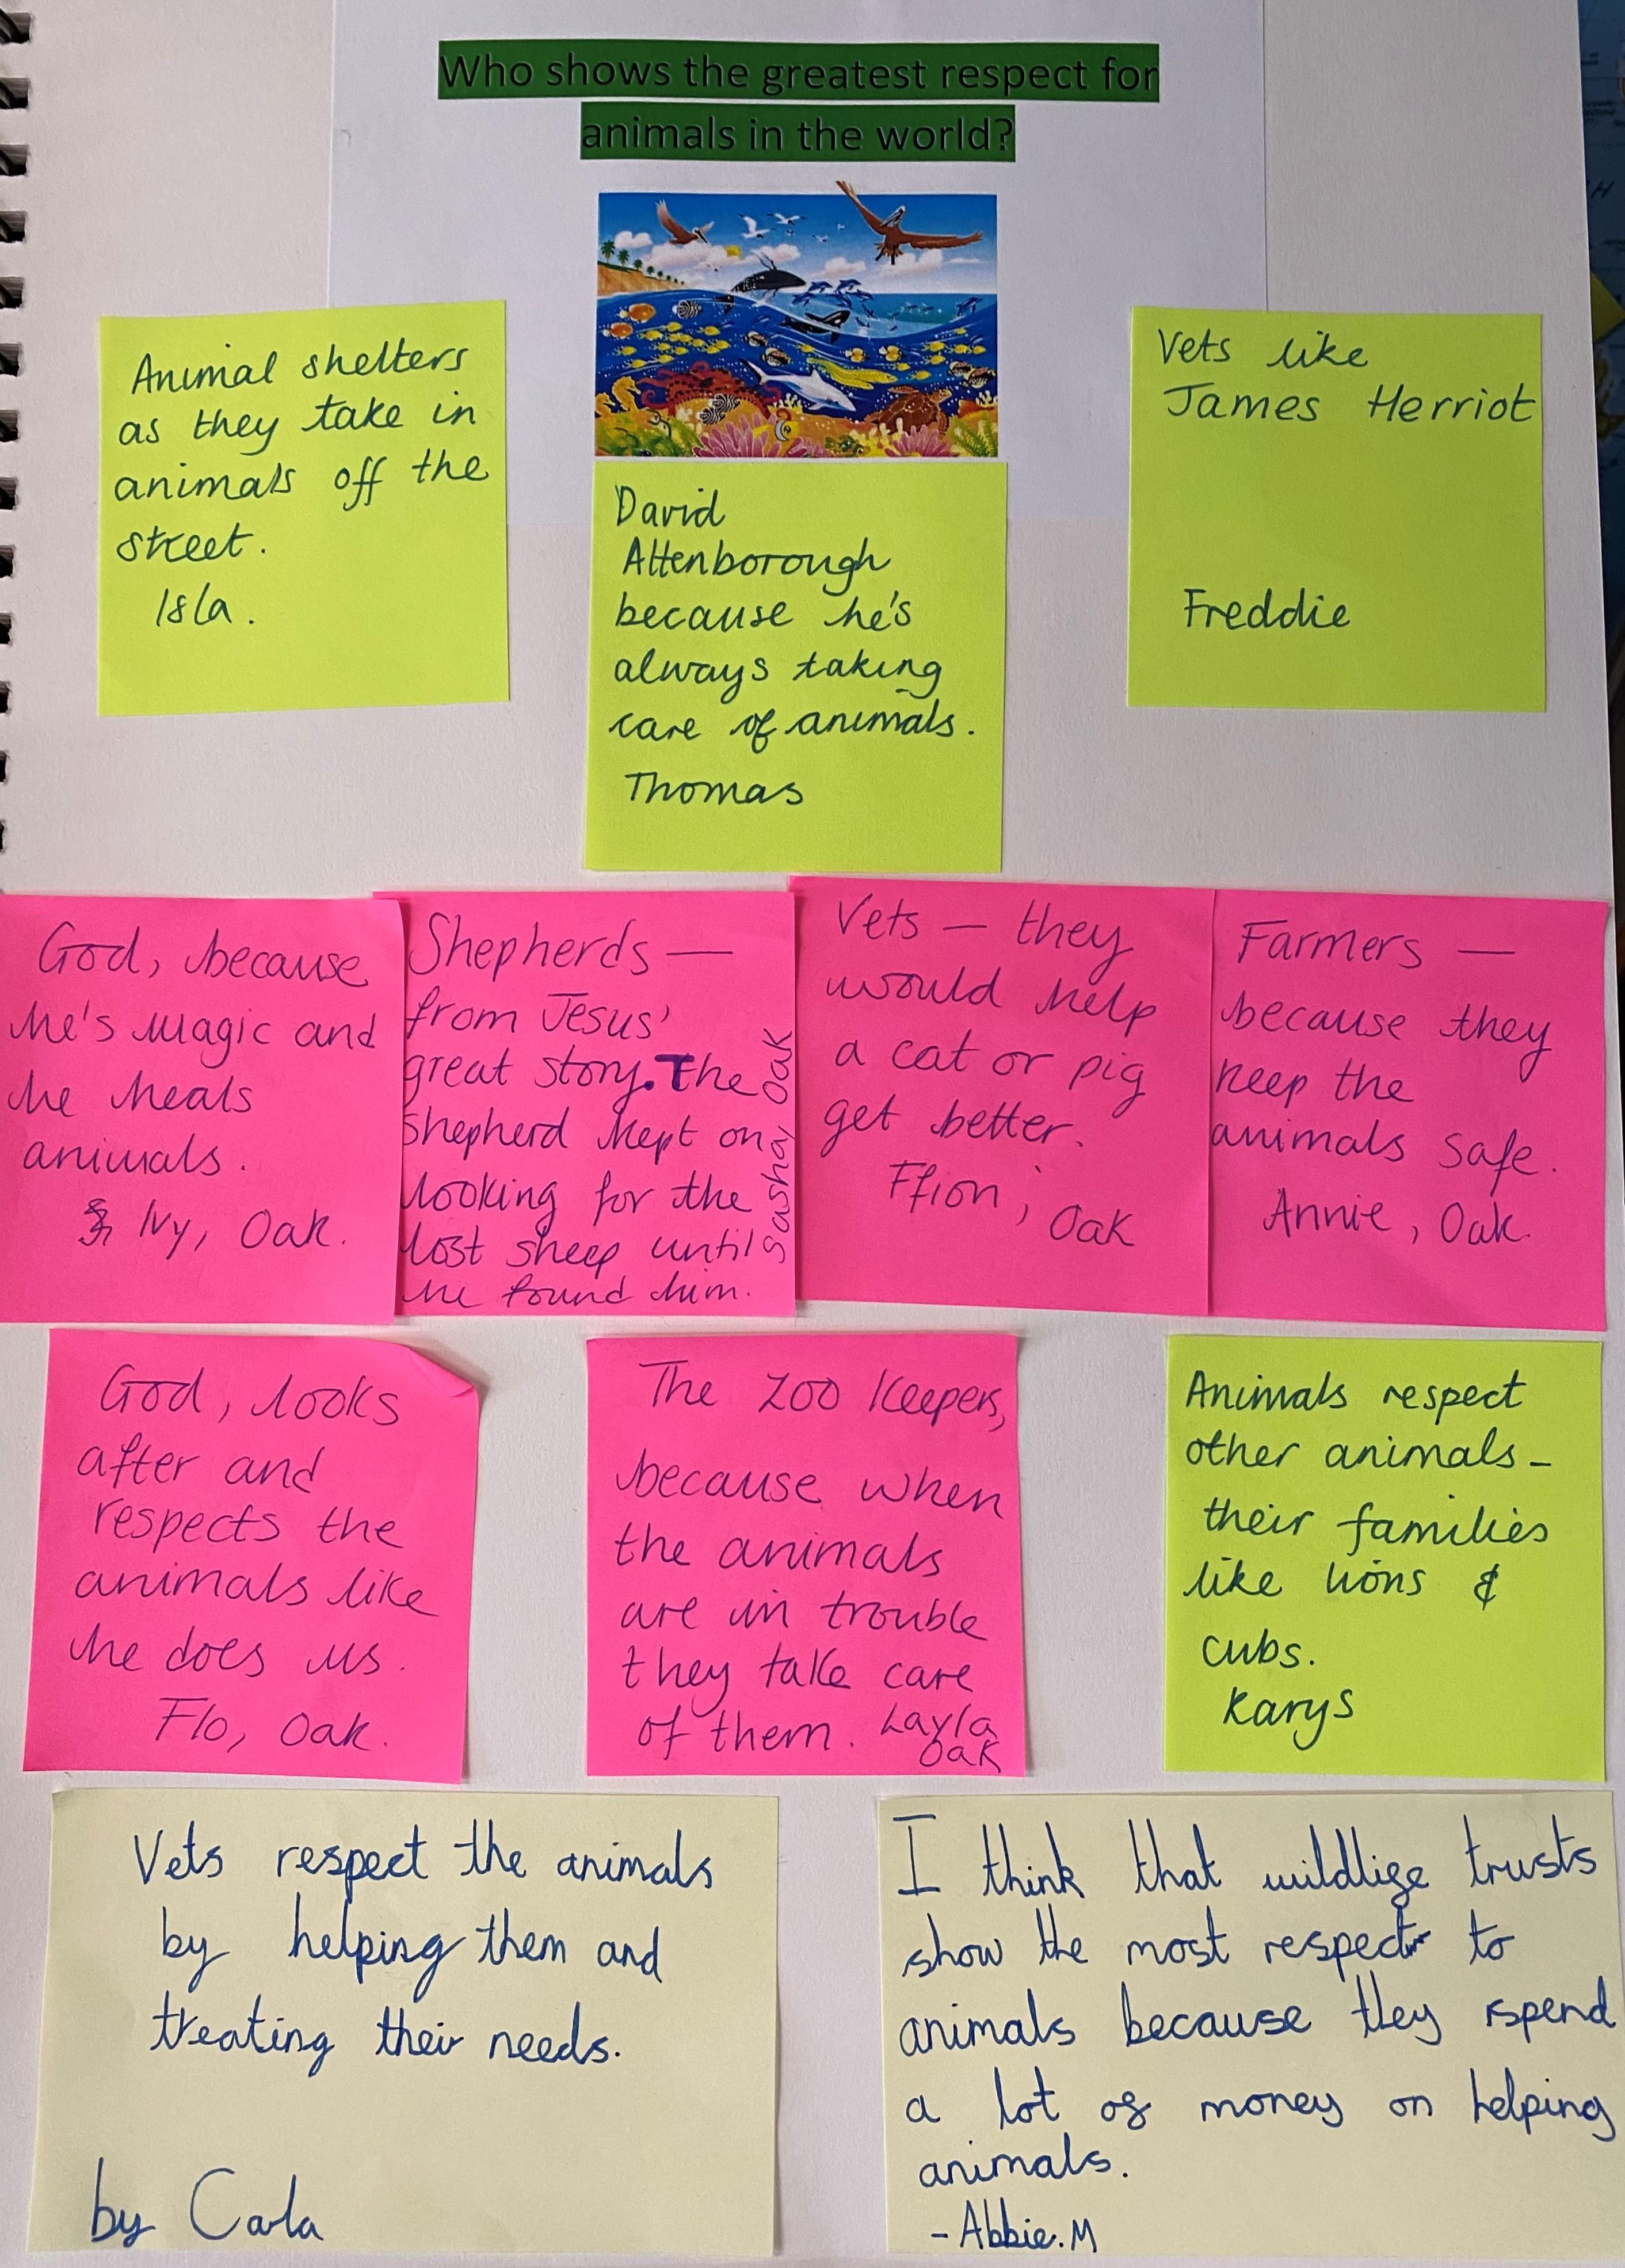 Who shows the greatest respect for
animals in the world?
Animal shelters
as they take in
animals off the
street.
Isla.
David
Attenborough
because he's
always taking
care of animals.
Thomas
Vets like
James Herriot
Freddie
God, because
he's magic and
he heals
animals.
Ivy, Oak.
Shepherds —
from Jesus'
great story. The
shepherd kept on
looking for the
lost sheep until
he found him.
Sasha, Oak
Vets — they
would help
a cat or pig
get better.
Ffion, Oak
Farmers —
because they
keep the
animals safe.
Annie, Oak.
God, looks
after and
respects the
animals like
he does us.
Flo, Oak.
The Zoo Keepers,
because when
the animals
are in trouble
they take care
of them. Layla
Oak
Animals respect
other animals -
their families
like lions &
cubs.
Karys
Vets respect the animals
by helping them and
treating their needs.
by Carla
I think that wildlife trusts
show the most respect to
animals because they spend
a lot of money on helping
animals.
- Abbie.M